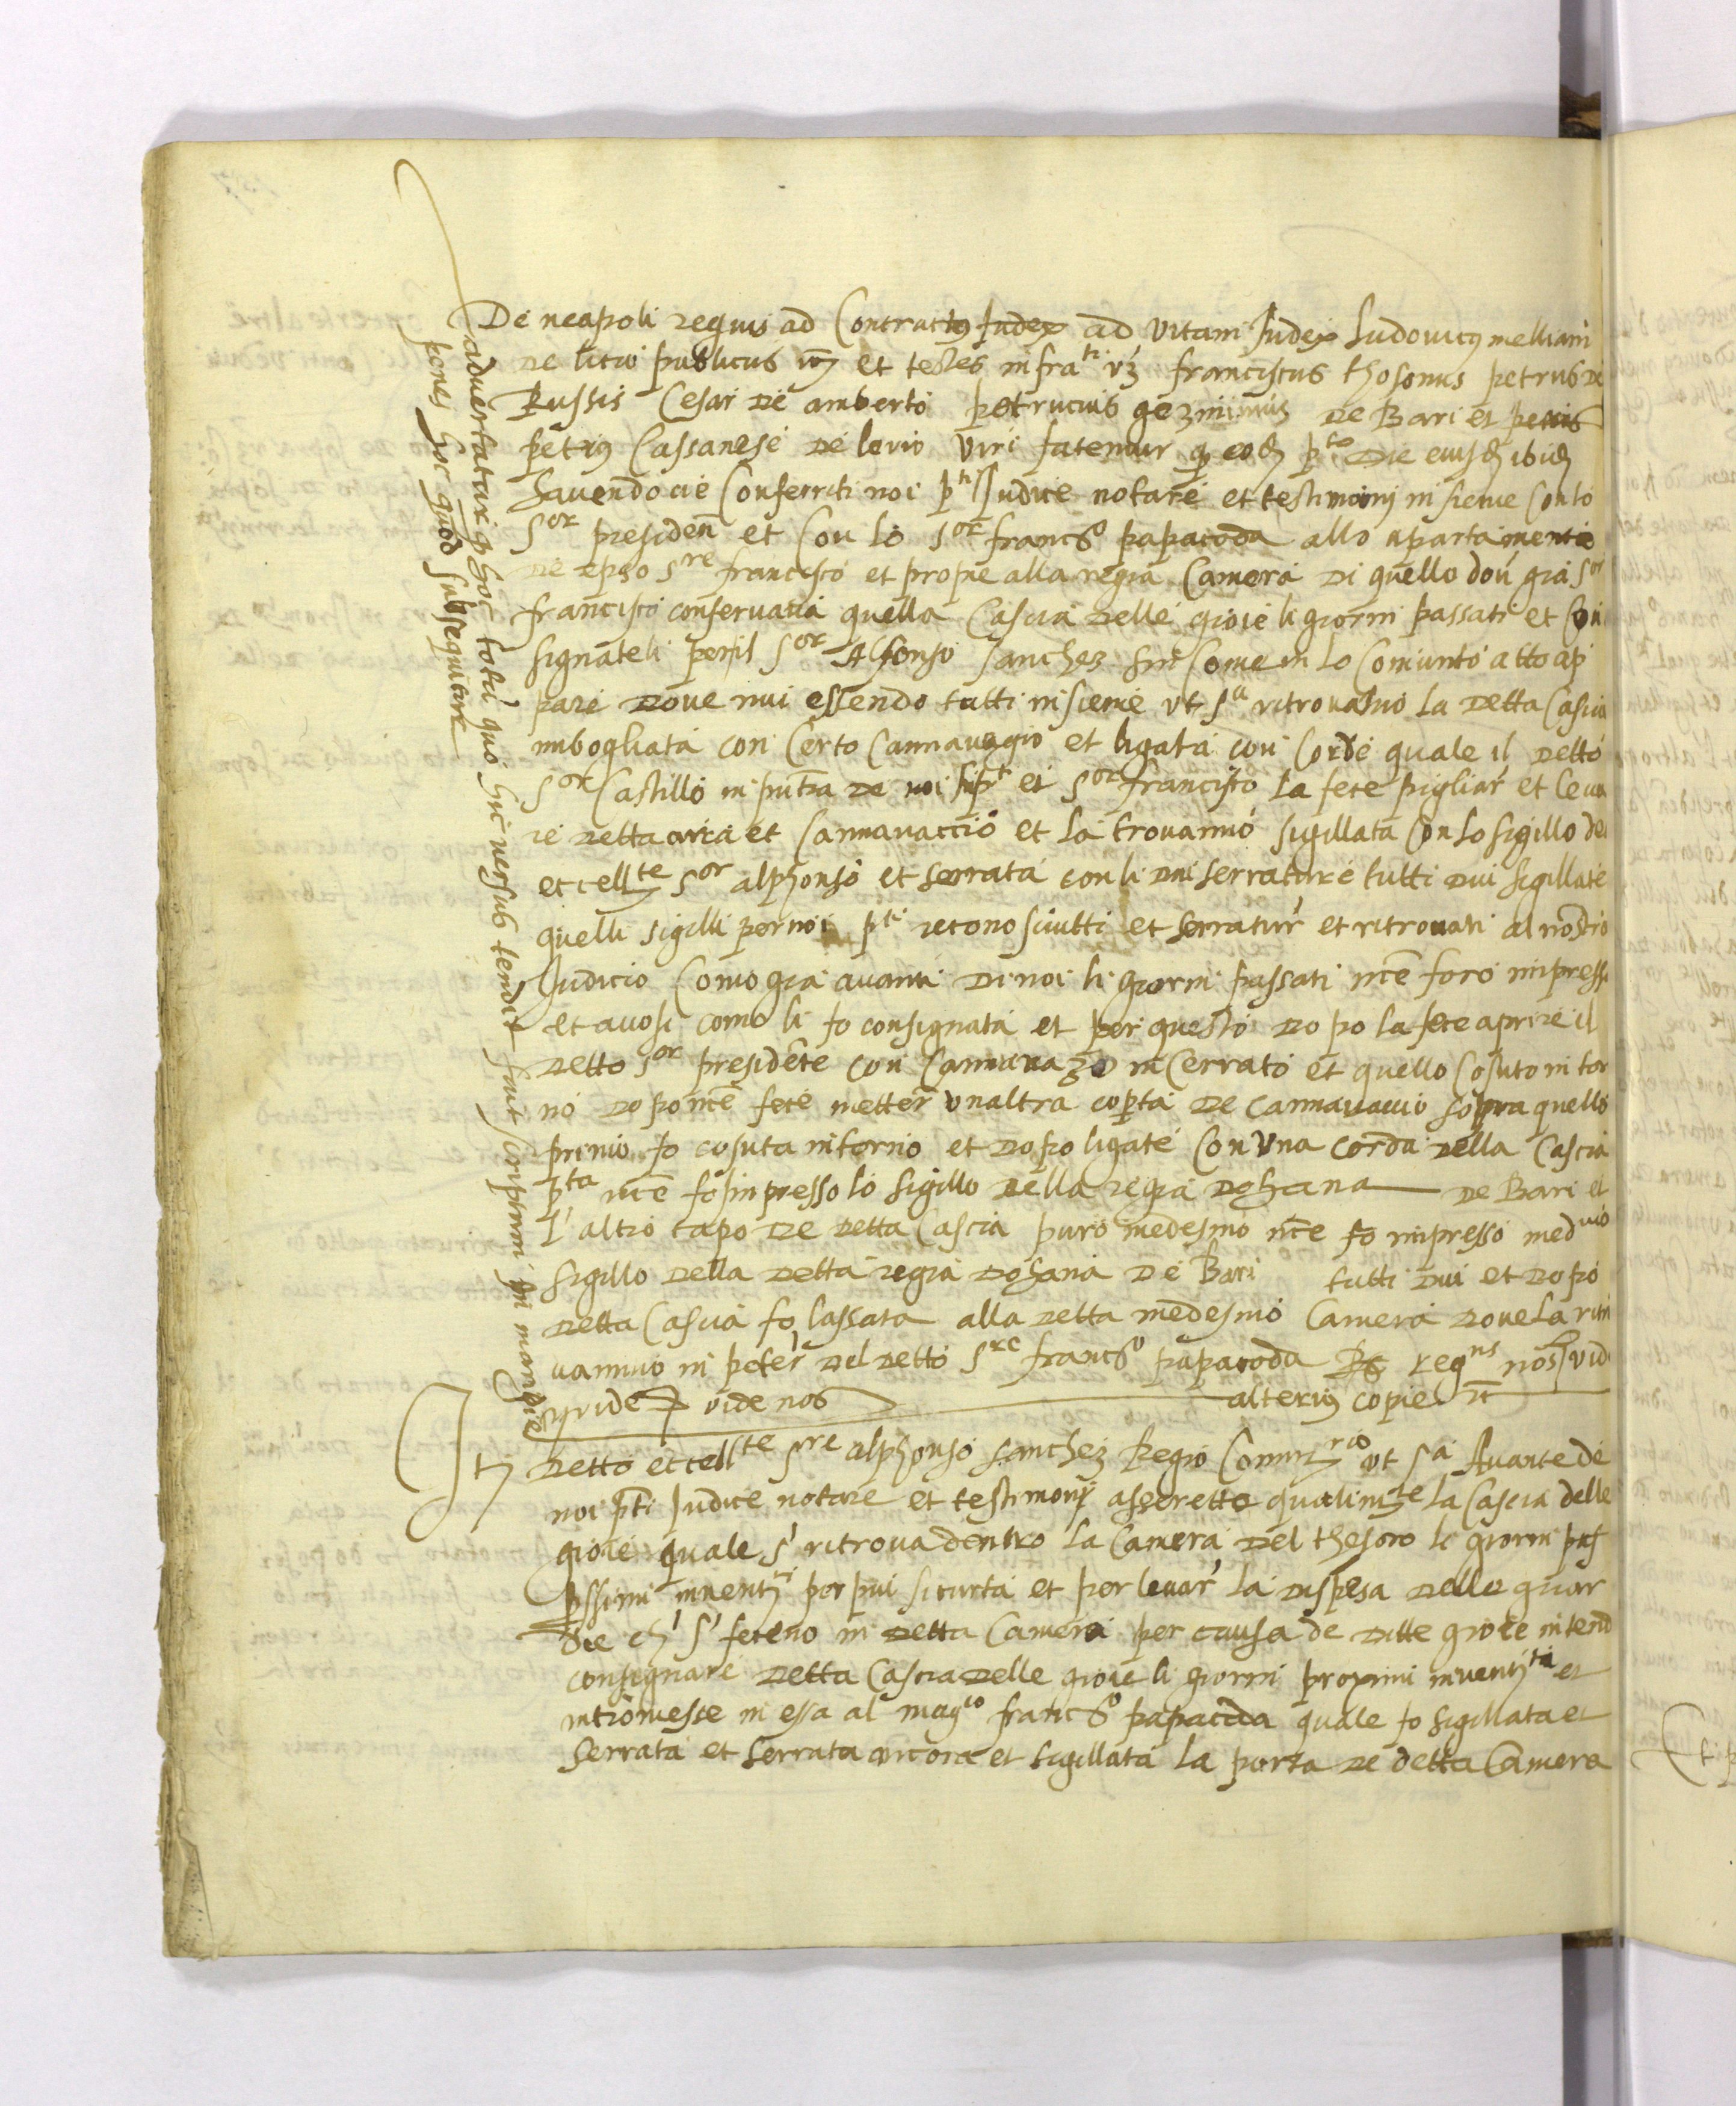 De neapoli regius ad Contractus Judex ad vitam Judex Ludovicus melliani
de licio publicus et testes infra^ti vz franciscus thosonus petrus de
Russis Cesar de amberto petrucius gezzimus de Bari et petrus
petrus Cassanese de lorio viri fatemur q eod p^to Die eiusd ibid
havendocie Conferiti noi p^ti Judice notare et testimonij insieme Con lo
S^or presiden et Con lo S^or franc^o papacoda allo apartamento
de epso S^re francisco et propie alla regia Camera Di quello don gia S^or
francisco conservava quella Cascia delle gioie li giorni passati et Con
signateli per il S^or Alfonso Sanchez Come in lo Coniunto atto ap
pare Dove nui essendo tutti insieme ut s^a ritrovaimo La Detta Cascia
imbogliata con Certo Cannavazgio et ligata con Corde quale il Detto
S^or Castillo in De noi et S^or francisco La fece pigliar et leva
re detta et Cannavaccio et la trovammo sigillata Con Lo sigillo de
eccell^te S^or alphonso et serrata con li dui serrature tutti dui sigillate
quelli sigilli per noi p^ti reconosciutti et serratur et ritrovati al nostro
Judicio Como gia avanti Di noi li giorni passati nce foro impressi
et avosi como li fo consignata et per questo Dopo la fece aprire il
Detto S^or presidente con Cannavazo incerrato et quello Cosuto intor
no Dopo nce fece metter un altra coperta De Cannavaccio sopra quello
primo fo cosuta intorno et Dopo ligate Con Una corda Della Cascia
p^ta nce fo impresso lo sigillo Della regia Dohana De Bari et
L'altro capo De Detta Cascia puro medesmo nce fo impresso med^mo
sigillo Della Detta regia Dohana De Bari tutti Dui et Dopo
Detta Cascia fo lassata alla Detta medesmo Camera Dove La ritro
vammo in poter Del Detto S^re franc^o papacoda
vide nos alterius copie
It Detto eccell^te S^re alphonso Sanchez Regio ut s^a Avante de
noi p^ti Judice notare et testimonij asserette qualim^te la Cascia delle
gioie quale s' ritrova dentro La Camera Del thesoro li giorni
inventi^ti per piu sicurta et per levar La Dispesa Delle guar
Die ch' s' feceno in Detta Camera per causa de Ditte gioie intend
consignare Detta Cascia Delle gioie li giorni proximi inventi^ta et
intromesse in essa al mag^co franc^o papacoda quale fo sigillata et
serrata et serrata ancora et sigillata La porta De detta Camera
advertatur q hoc totu quo hic versus tendit sunt scriptum in margine
penes hoc quod subsequitur